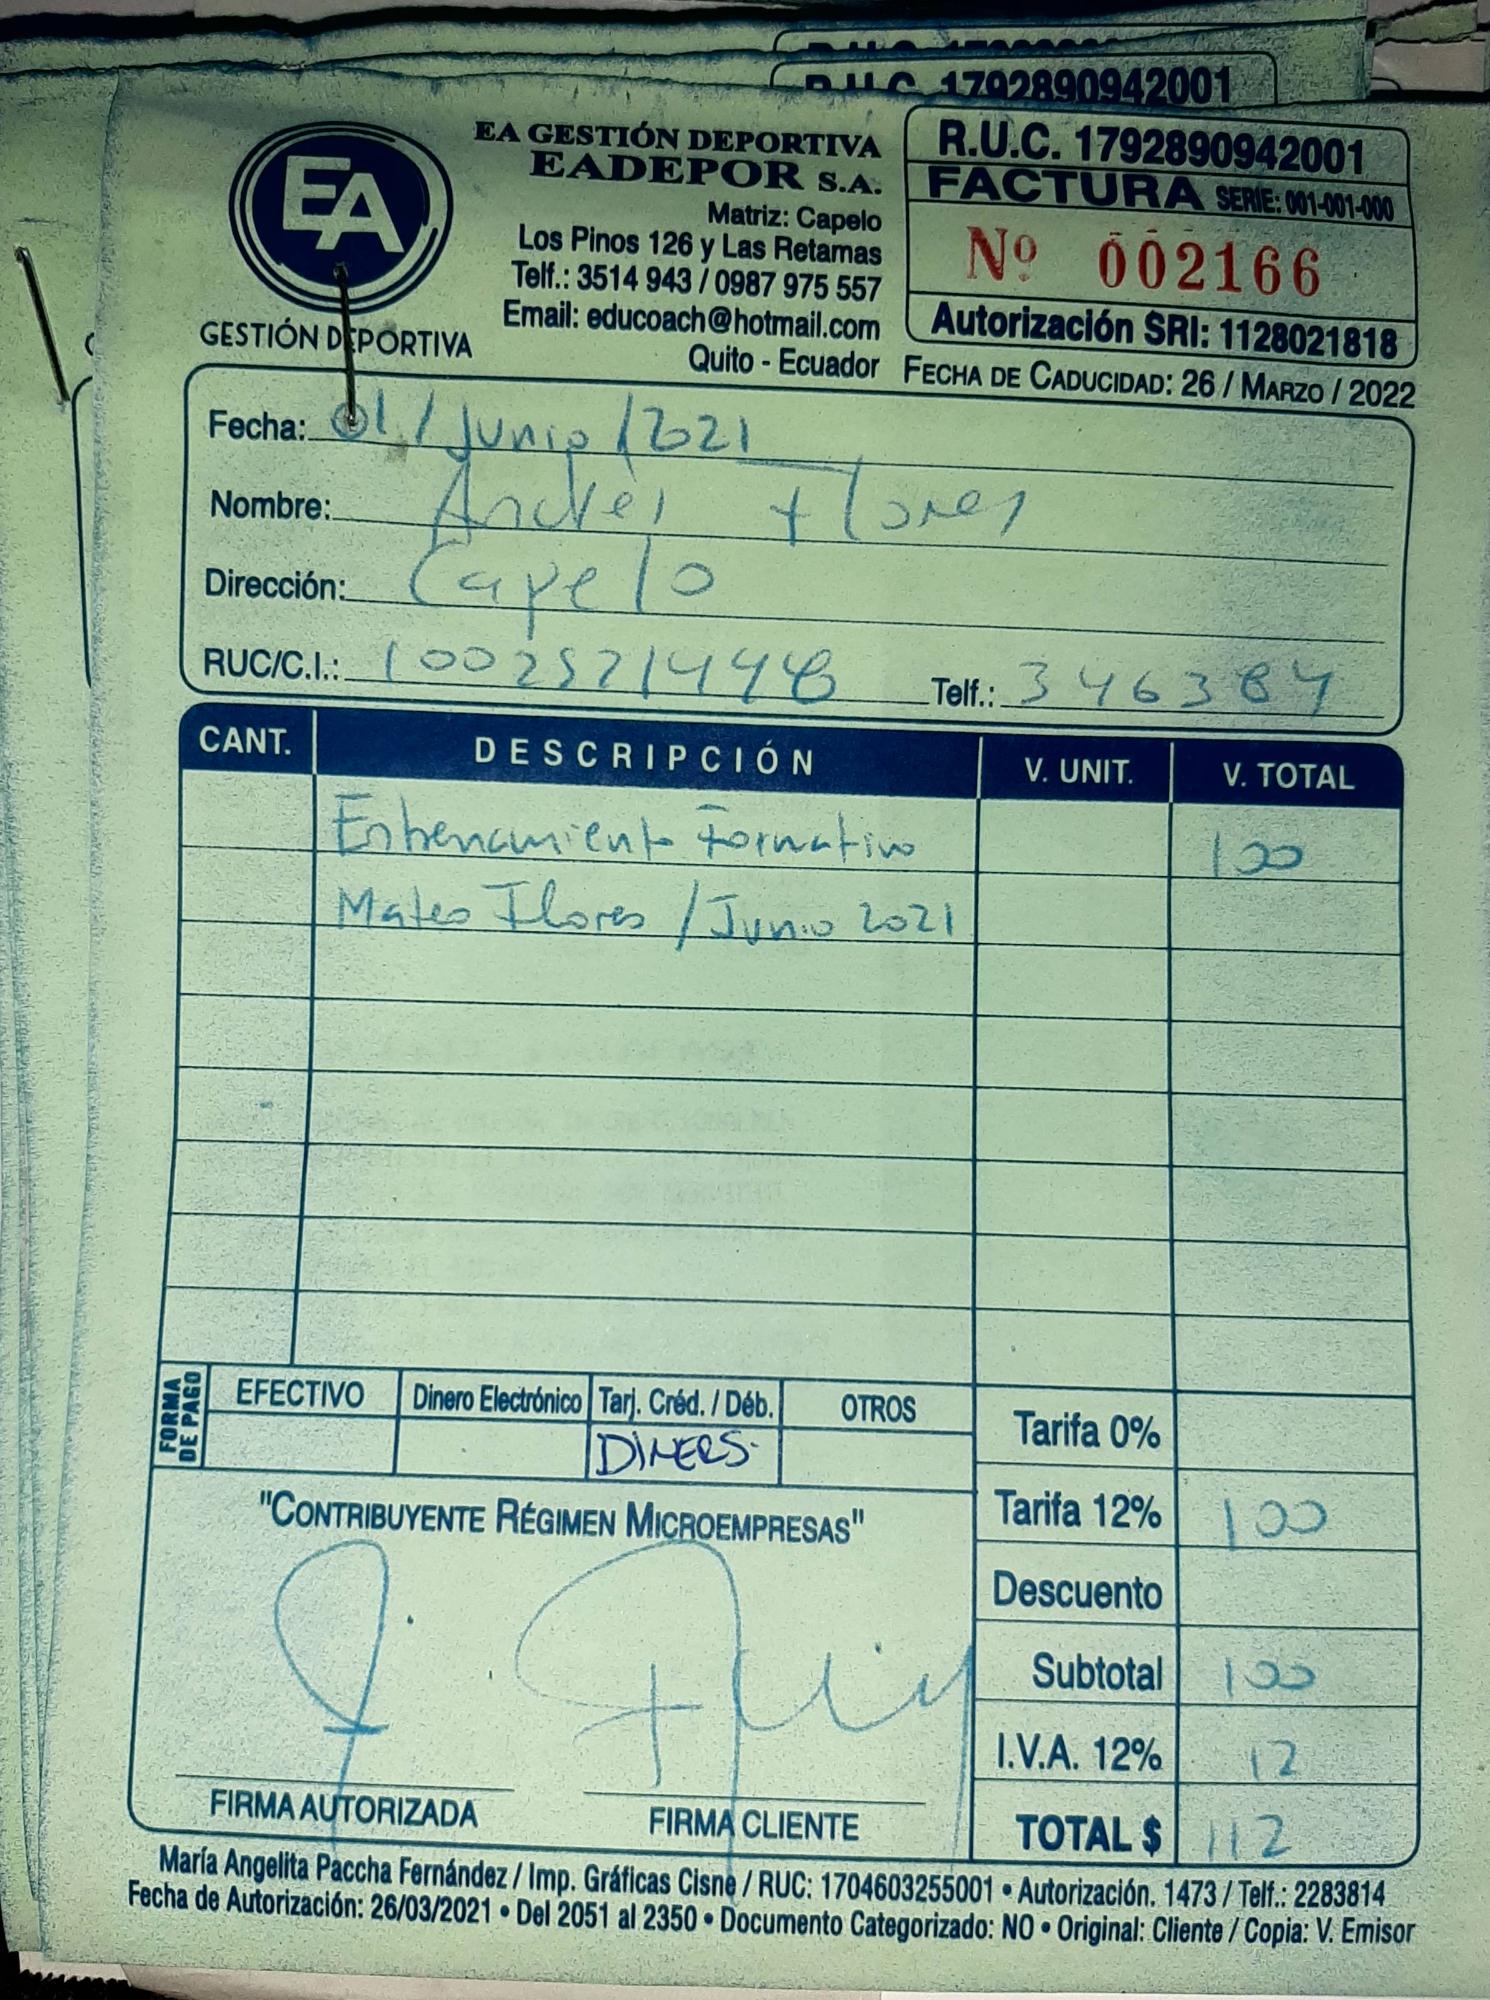 R.U.C. 1792890942001
EA
GESTIÓN DEPORTIVA
EA GESTIÓN DEPORTIVA
EADEPOR S.A.
Matriz: Capelo
Los Pinos 126 y Las Retamas
Telf.: 3514 943 / 0987 975 557
Email: educoach@hotmail.com
Quito - Ecuador
R.U.C. 1792890942001
FACTURA SERIE: 001-001-000
Nº 002166
Autorización SRI: 1128021818
FECHA DE CADUCIDAD: 26 / MARZO / 2022
Fecha: 01 / Junio / 2021
Nombre: Andrés Flores
Dirección: Capelo
RUC/C.I.: Telf.: 346384
CANT. DESCRIPCIÓN V. UNIT. V. TOTAL
Entrenamiento Formativo 100
Mateo Flores / Junio 2021
FORMA DE PAGO
EFECTIVO Dinero Electrónico Tarj. Créd. / Déb. OTROS
DINERS.
Tarifa 0%
Tarifa 12% 100
Descuento
Subtotal 100
I.V.A. 12% 12
TOTAL $ 112
"CONTRIBUYENTE RÉGIMEN MICROEMPRESAS"
FIRMA AUTORIZADA FIRMA CLIENTE
María Angelita Paccha Fernández / Imp. Gráficas Cisne / RUC: 1704603255001 • Autorización. 1473 / Telf.: 2283814
Fecha de Autorización: 26/03/2021 • Del 2051 al 2350 • Documento Categorizado: NO • Original: Cliente / Copia: V. Emisor